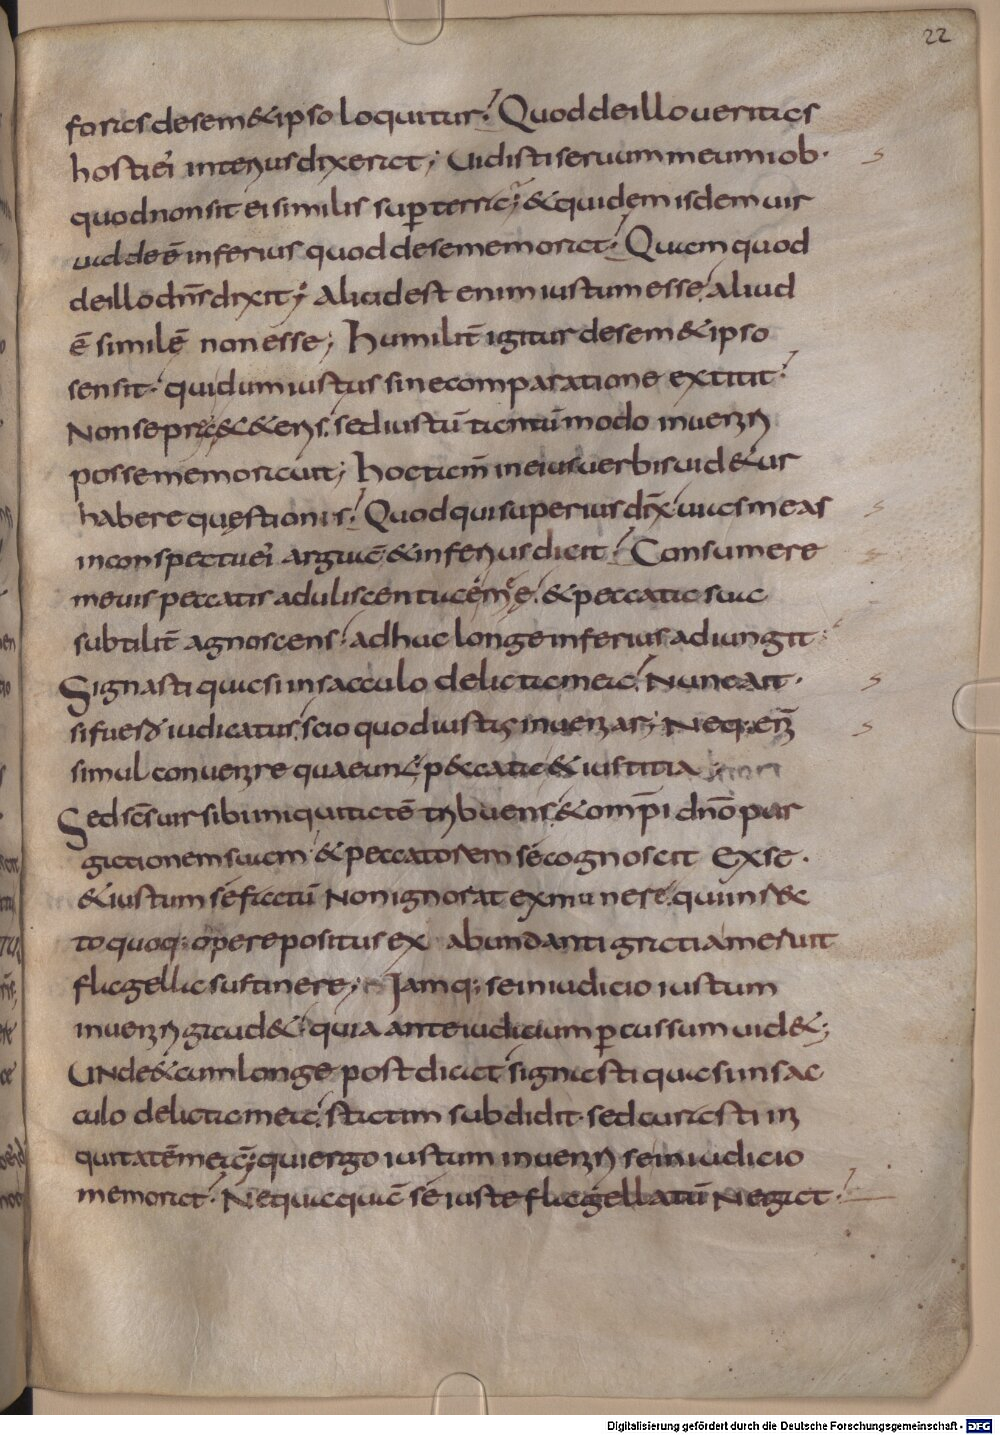 22
foras de sem&ipso loquitur? Quod de illo ueritas
hosti ei͛ interius dixerat; Uidisti seruum meum iob·
quod non sit ei similis sup̱ terrā; & quidem isdem uir
uidde ē inferius quod de sememorat? Quam quod
de illo dn̄s dixit; Aliud est enim iustum esse aliud
ē similē non esse; Humilit̄ igitur de sem&ipso
sensit· qui dum iustus sine comparatione extitit?
Non se praec&&eris, sed iustū tantū modo inueniri
posse memorauit; hoc tam̄ in eius uerbis uid&ur
habere questionis? Quod qui superius dix̄ uias meas
in conspectu ei͛ arguā & inferius dicit? Consumere
me uis peccatis aduliscentiae meę & peccata sua
subtilit̄ agnoscens· adhuc longe inferius adiungit:
Signasti quasi in sacculo delicta mea? Nunc ait·
si fuero iudicatus, scio quod iustus inueniar; Neq; enī
simul conuenire quaeunt p&cata & iustitia
Sed scs̄ uir sibi iniquitatē tribuens & omp̄i dn̄o pur
gationem suam & peccatorem se cognoscit Ex se·
& iustum se factū Non ignorat ex munere· qui in rec
to quoq; opere positus ex abundanti gratia meruit
flagella sustinere; Jamq; se in iudicio iustum
inueniri gaud&· quia ante iudicium p̱cussum uid&;
UNde& cum longe post dicat signasti quasi in sac
culo delicta mea, statim subdidit· sed curasti in
quitatē meā; qui ergo iustum inueniri se in iudicio
memorat? Nequaquā se iuste flagellatū Negat?
Digitalisierung gefördert durch die Deutsche Forschungsgemeinschaft - DFG